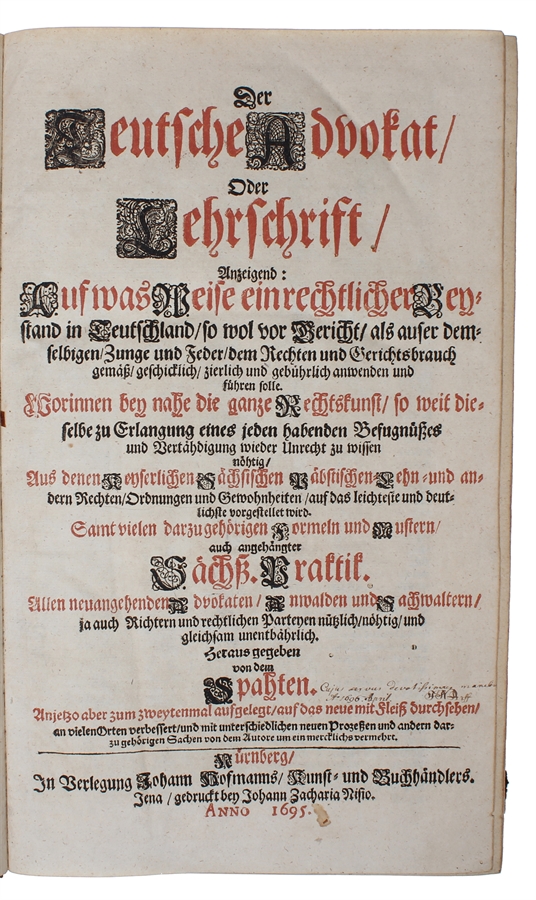 Der
Teutsche Advokat/
Oder
Lehrschrift/
Anzeigend:
Auf was Weise ein rechtlicher Bey-
stand in Teutschland/ so wol vor Gericht/ als auser dem-
selbigen/ Zunge und Feder/ dem Rechten und Gerichtsbrauch
gemäß/ geschicklich/ zierlich und gebührlich anwenden und
führen solle.
Worinnen bey nahe die ganze Rechtskunst/ so weit die-
selbe zu Erlangung eines jeden habenden Befugnüßes
und Vertähdigung wieder Unrecht zu wissen
nöhtig/
Aus denen Keyserlichen-Sächsischen Päbstischen-Lehn-und an-
dern Rechten/ Ordnungen und Gewohnheiten/ auf das leichteste und deut-
lichste vorgestellet wird.
Samt vielen darzu gehörigen Formeln und Mustern/
auch angehängter
Sächß. Praktik.
Allen neuangehenden Advokaten/ Anwalden und Sachwaltern/
ja auch Richtern und rechtlichen Parteyen nützlich/ nöhtig/ und
gleichsam unentbährlich.
Heraus gegeben
von dem
Spahten.
Anjetzo aber zum zweytenmal aufgelegt/ auf das neue mit Fleiß durchsehen/
an vielen Orten verbessert/ und mit unterschiedlichen neuen Prozeßen und andern dar-
zu gehörigen Sachen von dem Autore um ein mercklichs vermehrt.
Nürnberg/
In Verlegung Johann Hofmanns/ Kunst- und Buchhändlers.
Jena/ gedruckt bey Johann Zacharia Nisio.
ANNO 1695.